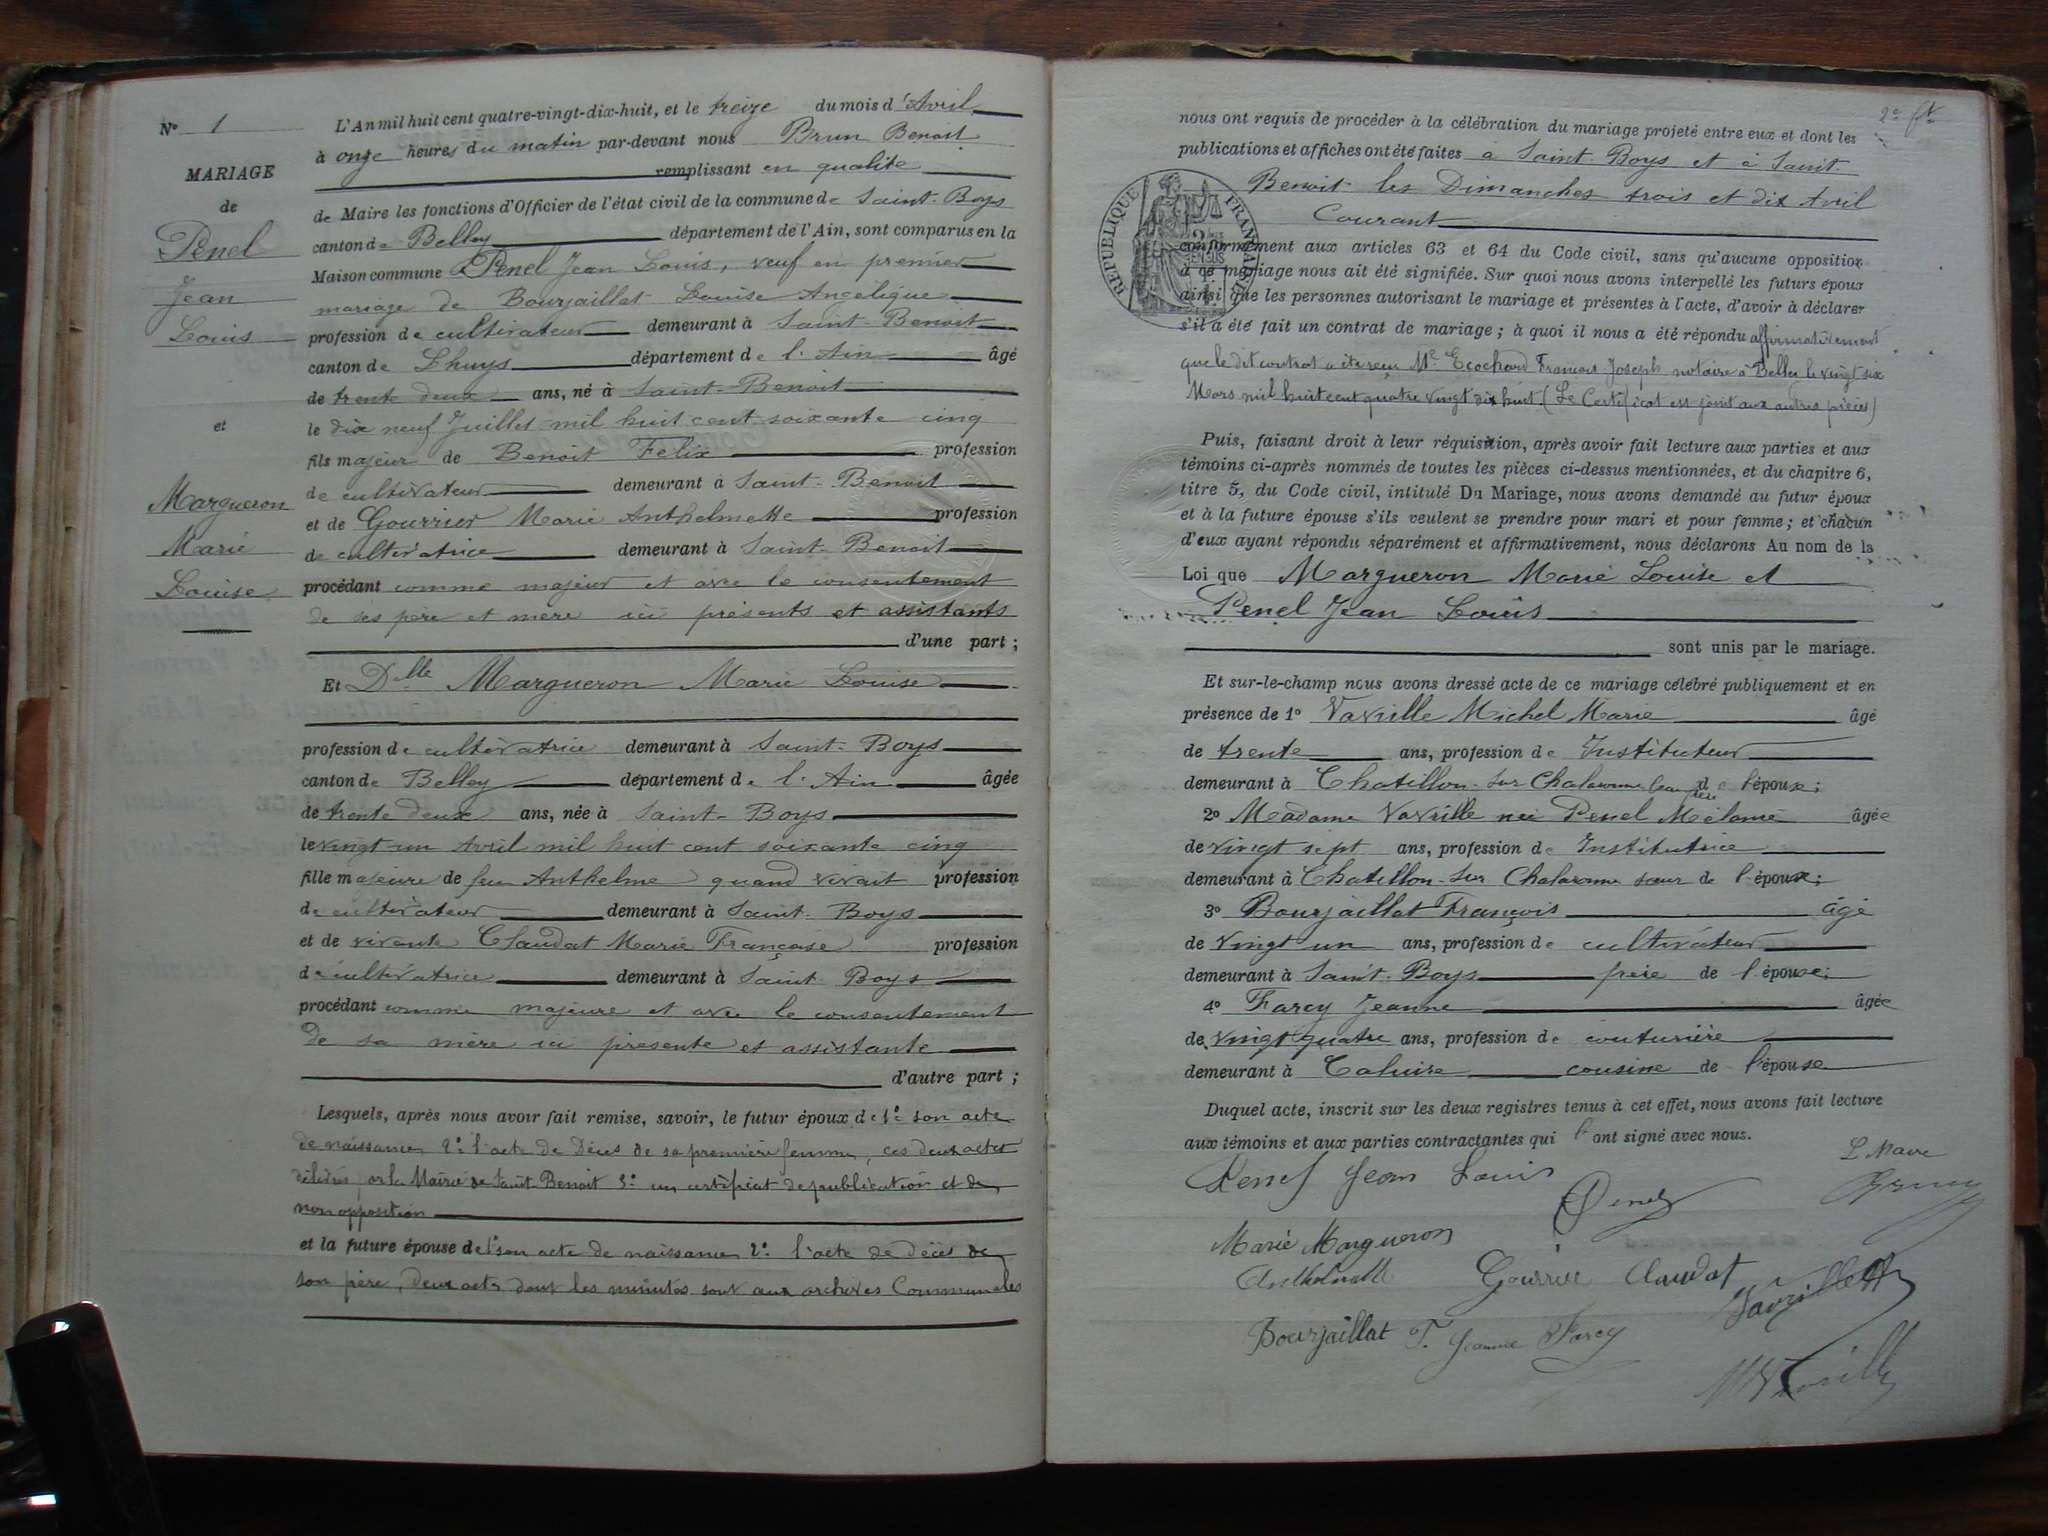 N° 1
MARIAGE
de
Penel
Jean
Louis
et
Margueron
Marie
Louise
L'An mil huit cent quatre-vingt-dix-huit, et le treize du mois d'Avril
à onze heures du matin par-devant nous Brun Benoit
remplissant en qualité
de Maire les fonctions d'Officier de l'état civil de la commune de Saint-Boys
canton de Belley département de l'Ain, sont comparus en la
Maison commune Penel Jean Louis, veuf en premier
mariage de Bourjaillat Louise Angélique
profession de cultivateur demeurant à Saint-Benoit
canton de Lhuys département de l'Ain âgé
de trente deux ans, né à Saint-Benoit
le dix neuf Juillet mil huit cent soixante cinq
fils majeur de Benoit Felix profession
de cultivateur demeurant à Saint-Benoit
et de Gourrier Marie Anthelmette profession
de cultivatrice demeurant à Saint-Benoit
procédant comme majeur et avec le consentement
de ses père et mère ici présents et assistants
d'une part ;
Et Dlle Margueron Marie Louise
profession de cultivatrice demeurant à Saint-Boys
canton de Belley département de l'Ain âgée
de trente deux ans, née à Saint-Boys
le vingt-un Avril mil huit cent soixante cinq
fille majeure de feu Anthelme quand vivait profession
de cultivateur demeurant à Saint-Boys
et de vivante Claudat Marie Françoise profession
de cultivatrice demeurant à Saint-Boys
procédant comme majeure et avec le consentement
de sa mère ici présente et assistante
d'autre part ;
Lesquels, après nous avoir fait remise, savoir, le futur époux de 1° son acte
de naissance, 2° l'acte de Décès de sa première femme, ces deux actes
délivrés par la Mairie de Saint-Benoit 3° un certificat de publication et de
non opposition
et la future épouse de 1° son acte de naissance, 2° l'acte de décès de
son père, deux actes dont les minutes sont aux archives Communales
2e ft
nous ont requis de procéder à la célébration du mariage projeté entre eux et dont les
publications et affiches ont été faites à Saint-Boys et à Saint-
Benoit les Dimanches trois et dix Avril
Courant
REPUBLIQUE FRANÇAISE
conformément aux articles 63 et 64 du Code civil, sans qu'aucune opposition
à ce mariage nous ait été signifiée. Sur quoi nous avons interpellé les futurs époux
ainsi que les personnes autorisant le mariage et présentes à l'acte, d'avoir à déclarer
s'il a été fait un contrat de mariage ; à quoi il nous a été répondu affirmativement
que le dit contrat a été reçu Me Ecochard François Joseph notaire à Belley le vingt six
Mars mil huit cent quatre vingt dix huit. (Le Certificat est joint aux autres pièces)
Puis, faisant droit à leur réquisition, après avoir fait lecture aux parties et aux
témoins ci-après nommés de toutes les pièces ci-dessus mentionnées, et du chapitre 6,
titre 5, du Code civil, intitulé Du Mariage, nous avons demandé au futur époux
et à la future épouse s'ils veulent se prendre pour mari et pour femme ; et chacun
d'eux ayant répondu séparément et affirmativement, nous déclarons Au nom de la
Loi que Margueron Marie Louise et
Penel Jean Louis
sont unis par le mariage.
Et sur-le-champ nous avons dressé acte de ce mariage célébré publiquement et en
présence de 1° Vavrille Michel Marie âgé
de trente ans, profession de Instituteur
demeurant à Chatillon-sur-Chalaronne beau frère de l'époux ;
2° Madame Vavrille née Penel Mélanie âgée
de vingt sept ans, profession de Institutrice
demeurant à Chatillon-sur-Chalaronne soeur de l'époux ;
3° Bourjaillat François âgé
de vingt un ans, profession de cultivateur
demeurant à Saint-Boys frère de l'épouse ;
4° Farcy Jeanne âgée
de vingt quatre ans, profession de couturière
demeurant à Caluire cousine de l'épouse
Duquel acte, inscrit sur les deux registres tenus à cet effet, nous avons fait lecture
aux témoins et aux parties contractantes qui l'ont signé avec nous.
Penel Jean Louis
Penel
L Maire
Brun
Marie Margueron
Gourrier
Claudat
Bourjaillat F. Jeanne Farcy